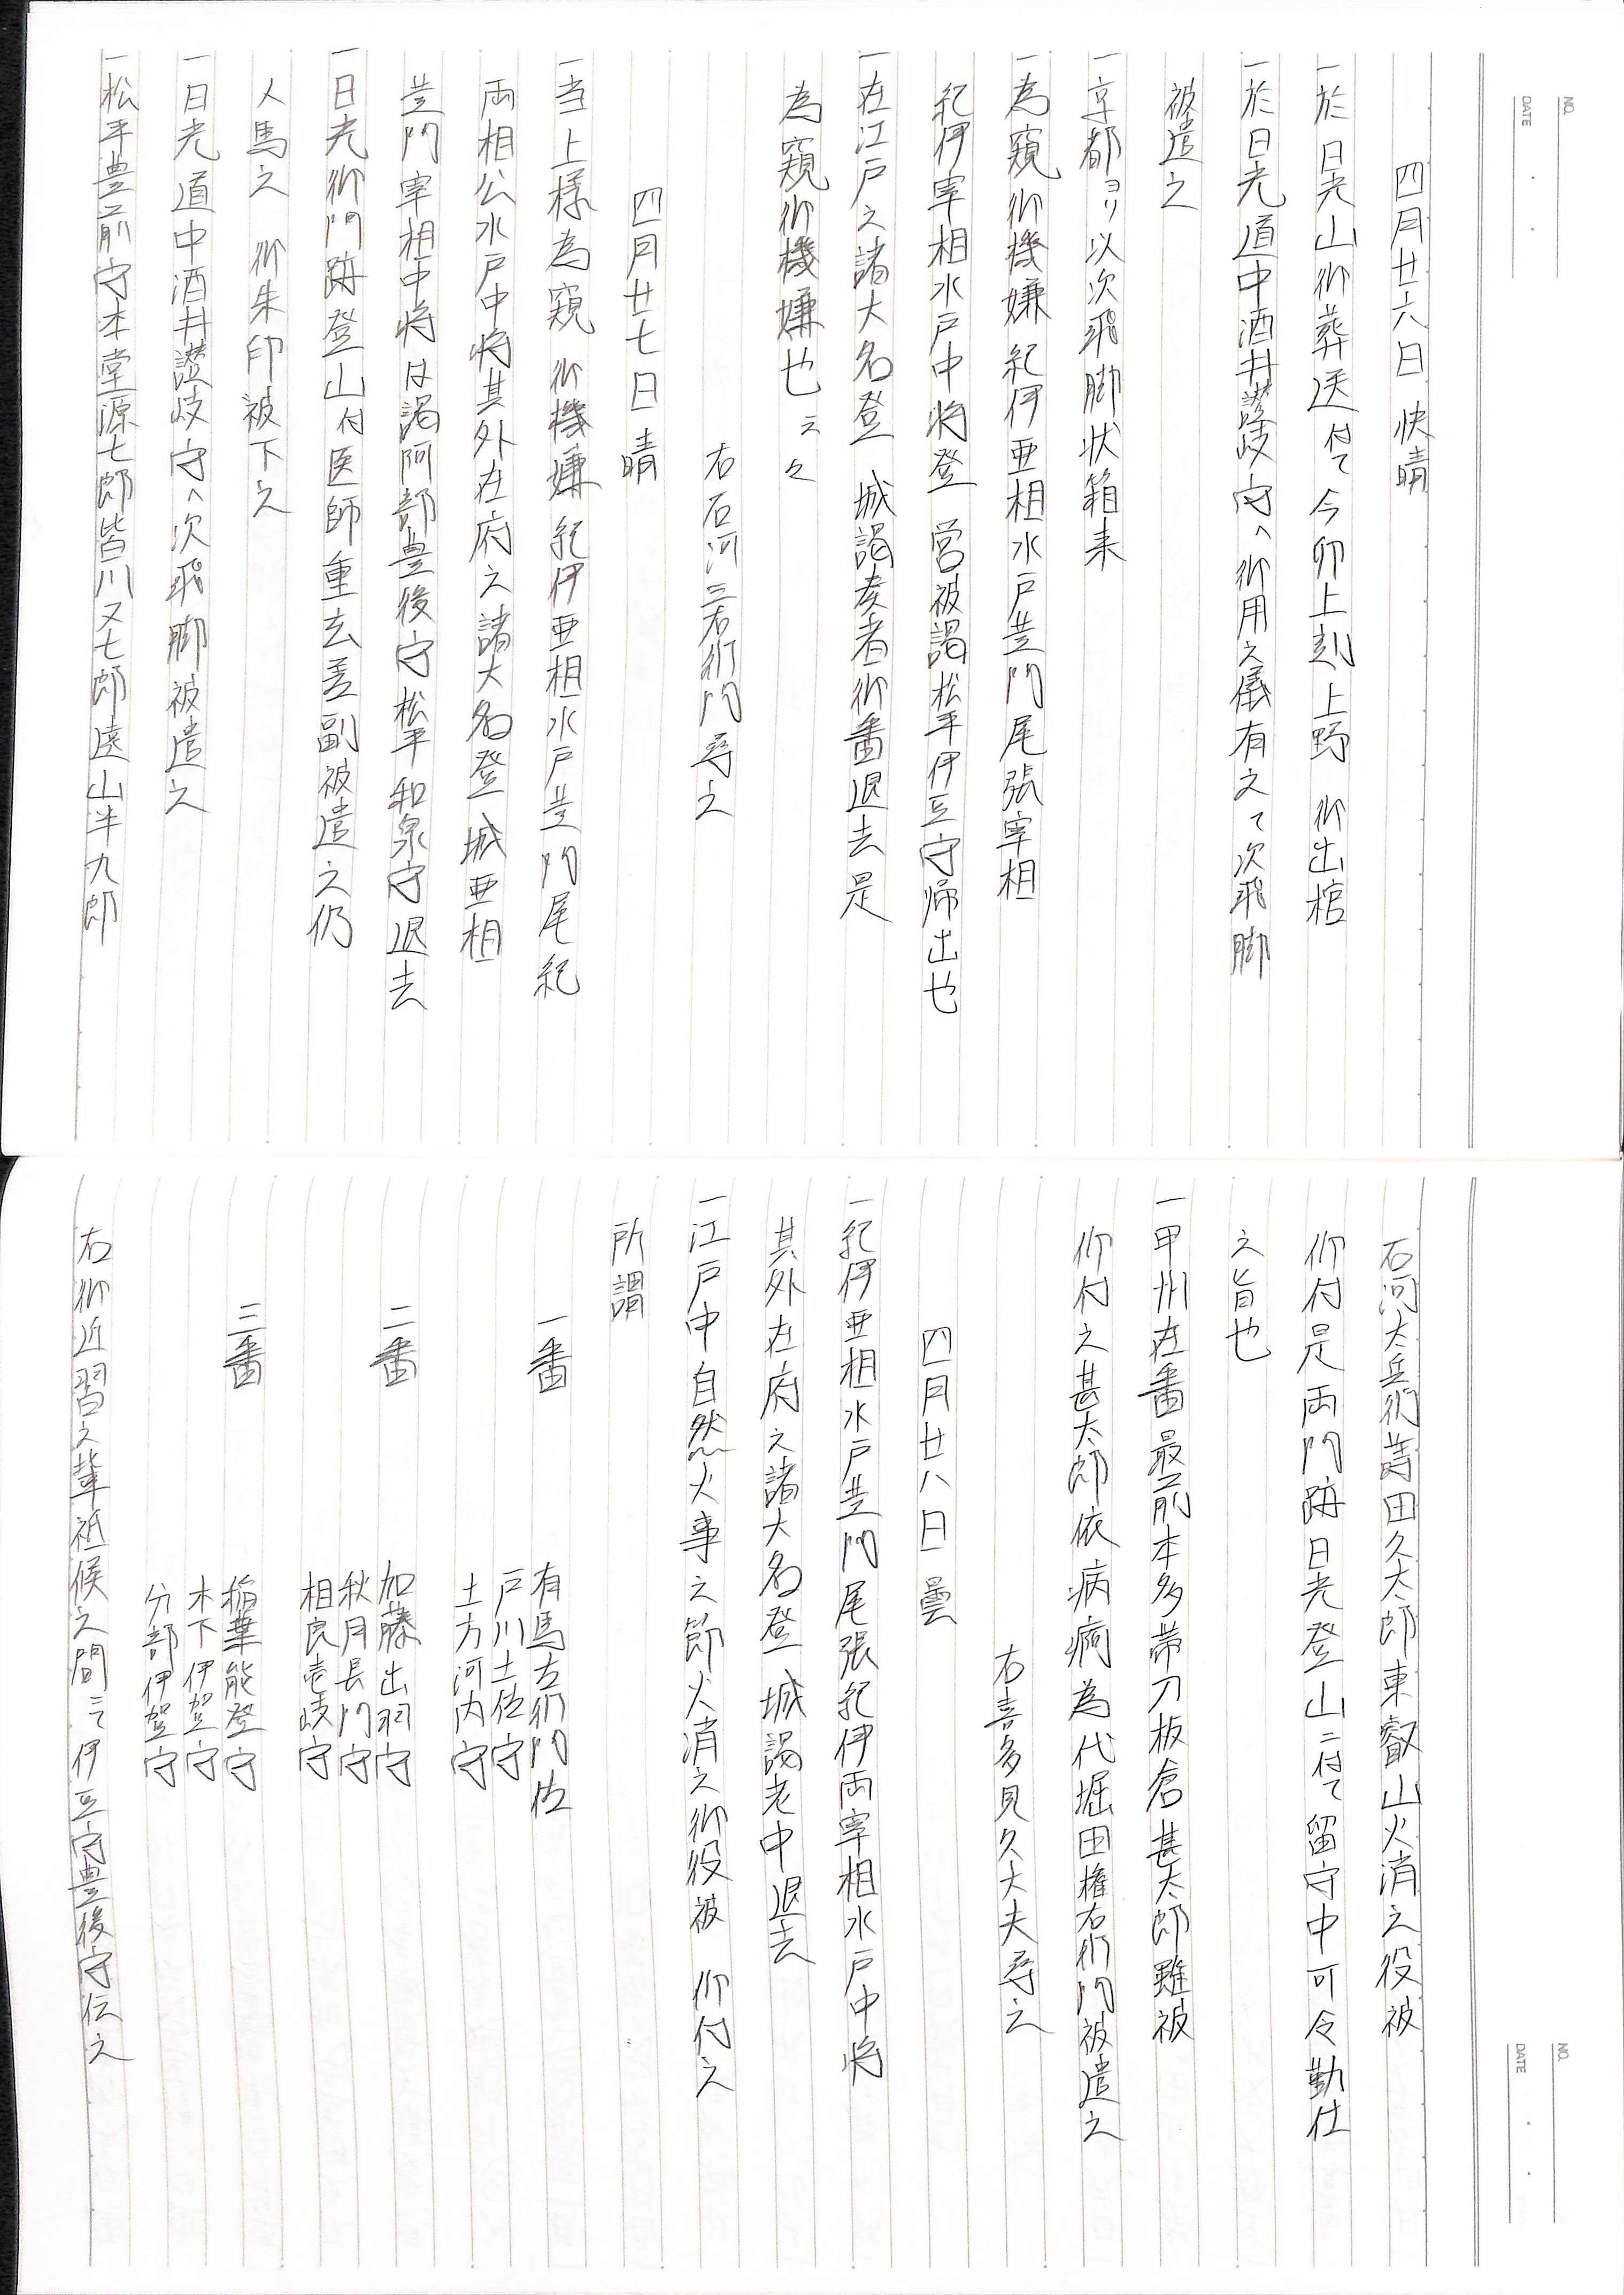 NO.
DATE
四月廿六日 快晴
一於日光山御葬送付て今卯上刻上野 御出棺
一於日光道中酒井讃岐守へ御用之儀有之て次飛脚
被遣之
一京都ヨリ以次飛脚状箱来
一為窺御機嫌紀伊亜相水戸黄門尾張宰相
紀伊宰相水戸中将登 営被謁松平伊豆守帰出也
一在江戸之諸大名登 城謁奏者御番退去是
為窺御機嫌也云々
右石河三右衛門尋之
四月廿七日 晴
一当上様為窺 御機嫌紀伊亜相水戸黄門尾紀
両相公水戸中将其外在府之諸大名登 城亜相
黄門宰相中将は謁阿部豊後守松平和泉守退去
一日光御門跡登山付医師重玄差副被遣之仍
人馬之 御朱印被下之
一日光道中酒井讃岐守へ次飛脚被遣之
一松平豊前守本堂源七郎皆川又七郎遠山半九郎
NO.
DATE
石河太兵衛蒔田久太郎東叡山火消之役被
仰付是両門跡日光登山ニ付て留守中可令勤仕
之旨也
一甲州在番最前本多帯刀板倉甚太郎雖被
仰付之甚太郎依病痾為代堀田権右衛門被遣之
右喜多見久大夫尋之
四月廿八日 曇
一紀伊亜相水戸黄門尾張紀伊両宰相水戸中将
其外在府之諸大名登 城謁老中退去
一江戸中自然火事之節火消之御役被 仰付之
所謂
一番 有馬左衛門佐
戸川土佐守
土方河内守
二番 加藤出羽守
秋月長門守
相良壱岐守
三番 稲葉能登守
木下伊賀守
分部伊賀守
右御近習之輩祗候之間ニて伊豆守豊後守伝之